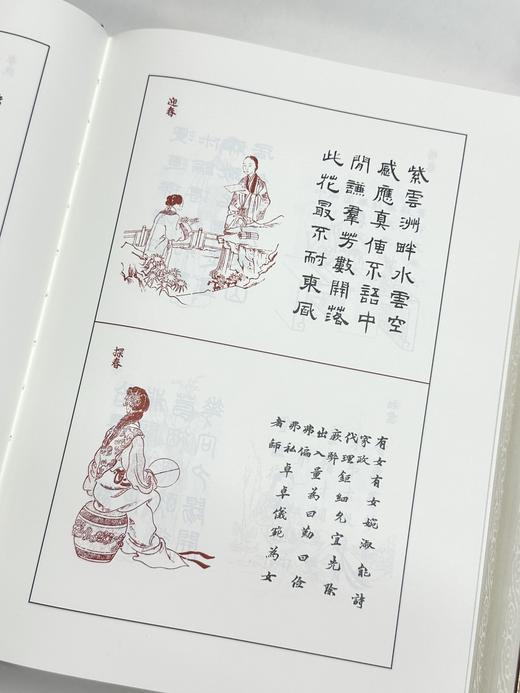 迎春
紫雲洲畔水雲空
感應真傳不語中
閒譜羣芳數開落
此花最不耐東風
探春
有女有女婉淑能詩
家政代理鉅細允宜先除
弊出入量為曰勤曰儉
弗偏弗私卓卓儀範為女
者師